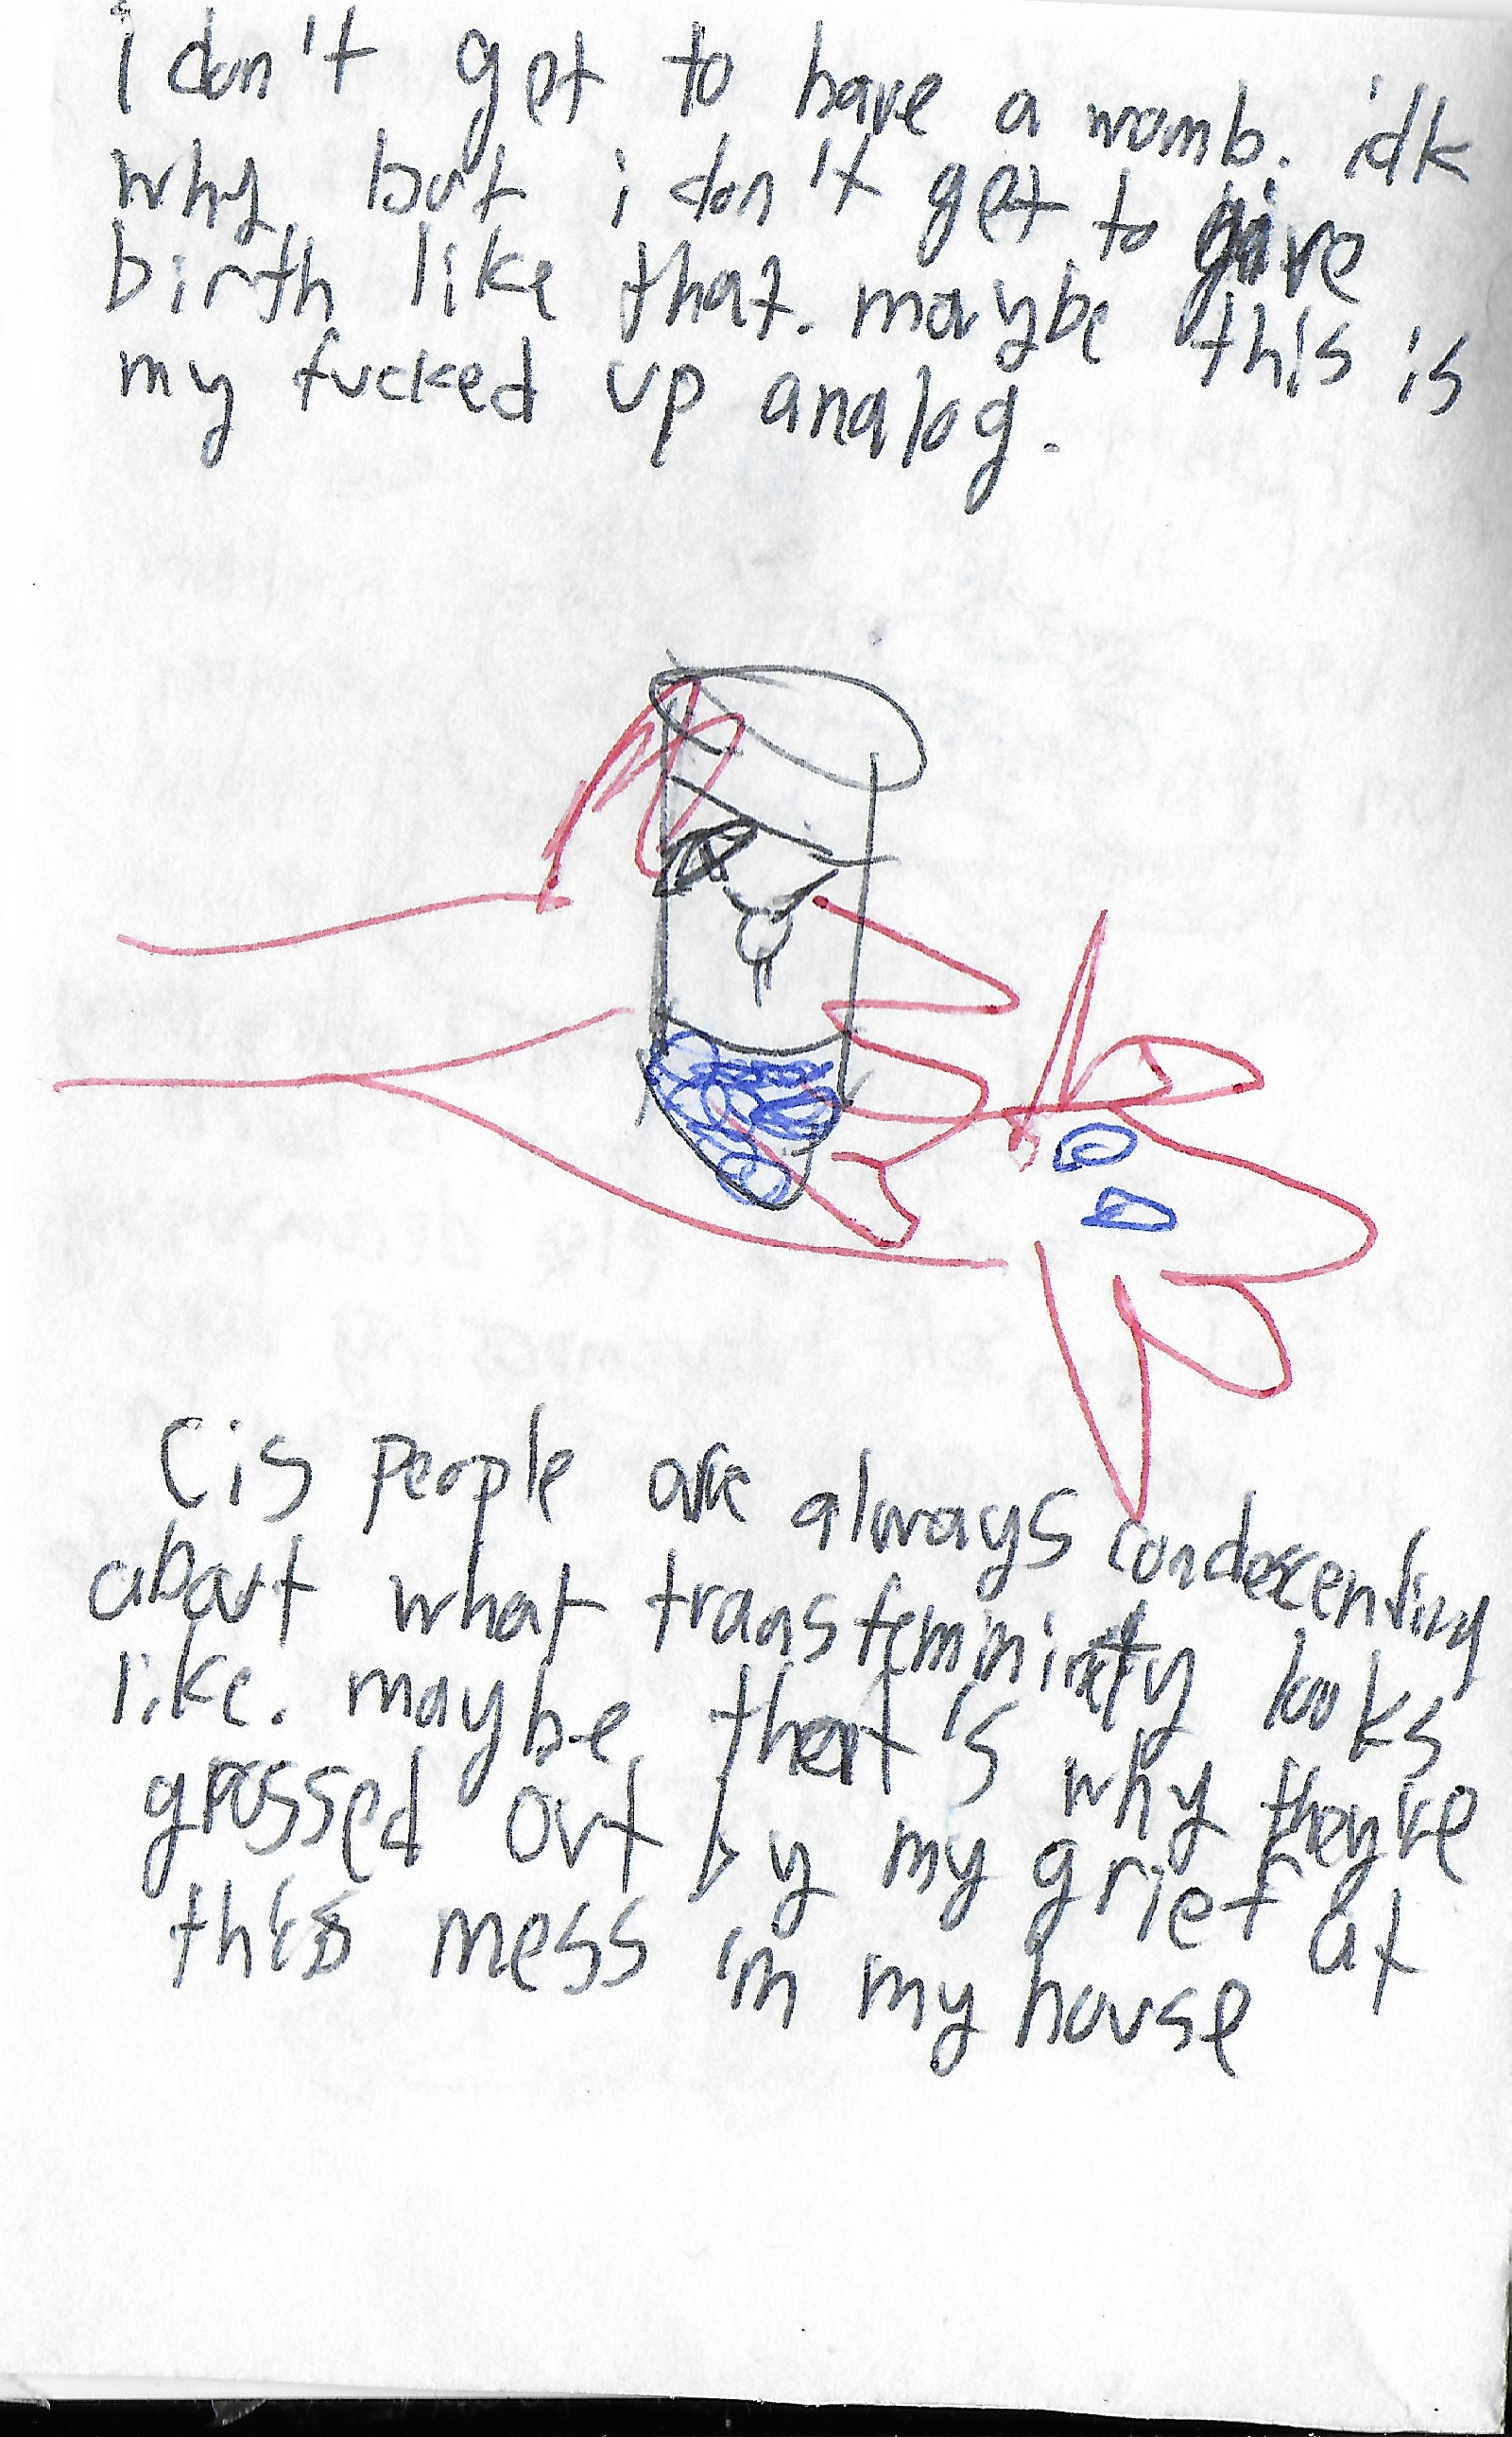 i don't get to have a womb. idk
why, but i don't get to give
birth like that. maybe this is
my fucked up analog.
Cis people are always condescending
about what transfemininity looks
like. maybe that's why they're
grossed out by my grief at
this mess in my house